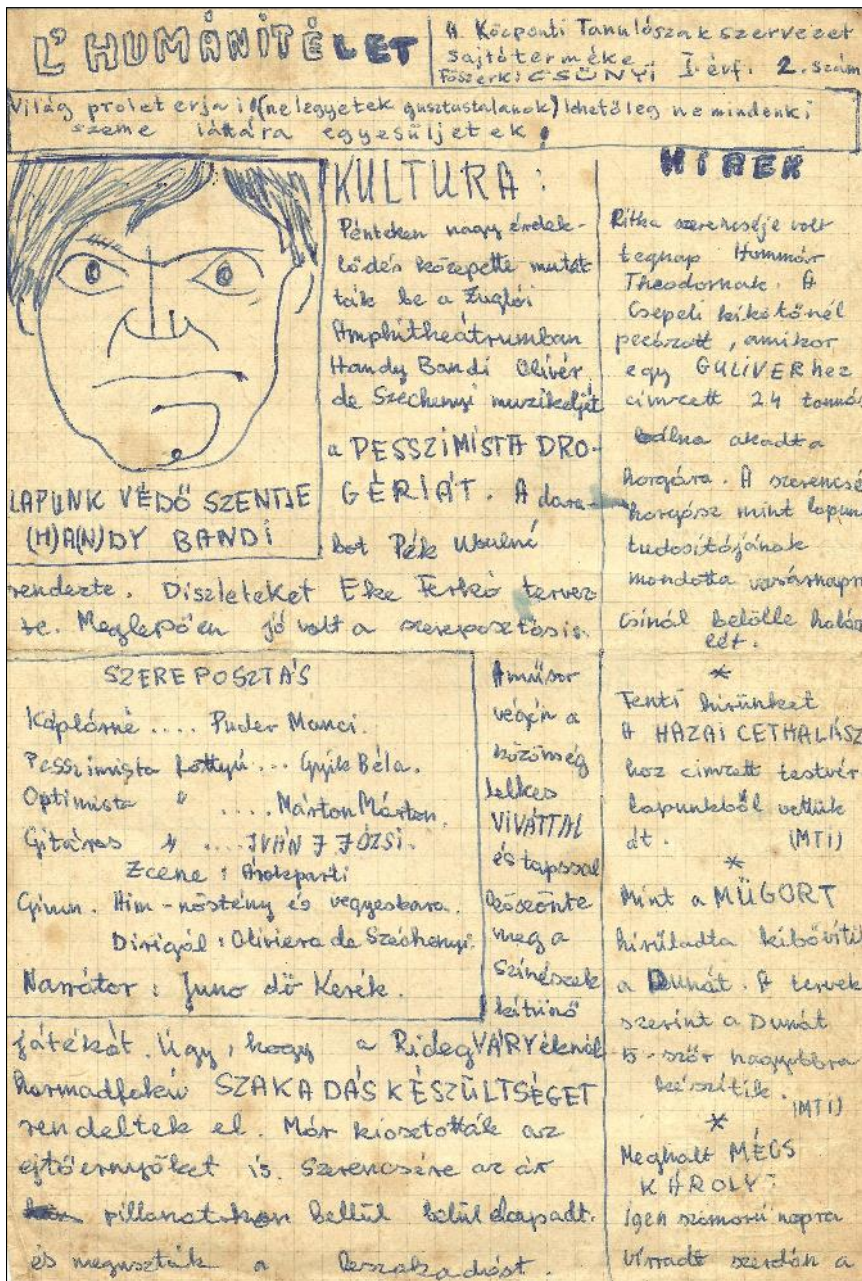 L'HUMÁNITÉLET
A. Központi Tanulószakszervezet
sajtóterméke
Főszerk: CSÚNYI I. évf. 2. szám
Világ proleterjai! (ne legyetek gusztustalanok) lehetőleg ne mindenki
szeme láttára egyesüljetek!
LAPUNK VÉDŐ SZENTJE
(H)A(N)DY BANDI
KULTURA:
Pénteken nagy érdek-
lődés közepette mutat
ták be a Zuglói
Amphitheátrumban
Handy Bandi Olivér
de Széchenyi muzikeljét
a PESSZIMISTA DRO-
GÉRIÁT. A dara-
bot Pék
rendezte. Diszleteket Eke Ferkó tervez
te. Meglepően jó volt a szereposztás is.
SZEREPOSZTÁS
Káplárné .... Puder Manci.
Pesszimista kottyú... Gyik Béla.
Optimista " .... Márton Márton.
Gitáros " .... IVÁN J JÓZSI.
Zcene : Árokparti
Gimn. Him-nőstény és vegyeskara.
Dirigál : Oliviera de Széchenyi.
Narrátor : Juno dö Kerék.
A műsor
végén a
közönség
lelkes
VIVÁTTAL
és tapssal
köszönte
meg a
színészek
kitünő
játékát. Úgy, hogy a RidegVÁRYéknál
harmadfokú SZAKADÁSKÉSZÜLTSÉGET
rendeltek el. Már kiosztották az
ejtőernyőket is. Szerencsére az ár
pillanatokon bellül belül elapadt.
és megúszták a leszakadást.
HIREK
Ritka szerencséje volt
tegnap Hummár
Theodornak. A
Csepeli kikötőnél
pecázott, amikor
egy GULIVERhez
cimzett 24 tonnás
bálna akadta
horgára. A szerencsé
horgász mint lapun
tudósitójának
mondotta vasárnapra
csinál belőlle halász
lét.
*
Fenti hirünket
A HAZAI CETHALÁSZ
hoz cimzett testvér
lapunkból vettük
át. (MTI)
*
Mint a MÜGORT
hirüladta kibővitik
a Dunát. A tervek
szerint a Dunát
5-ször nagyobbra
készítik. (MTI)
*
Meghalt MÉCS
KÁROLY:
Igen szomorú napra
virradt szerdán a